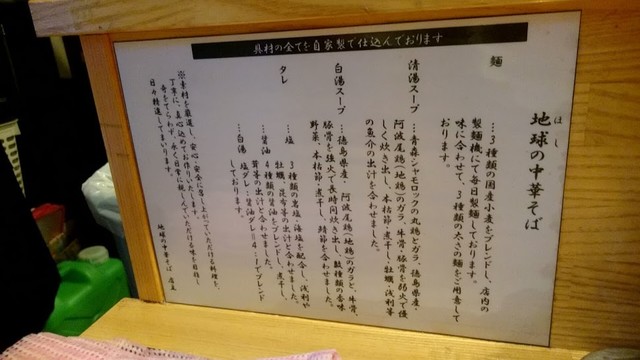 具材の全てを自家製で仕込んでおります
地球の中華そば
ほし
麺
…3種類の国産小麦をブレンドし、店内の
製麺機にて毎日製麺しております。
味に合わせて、3種類の太さの麺をご用意して
おります。
清湯スープ
…青森シャモロックの丸鶏とガラ、徳島県産・
阿波尾鶏(地鶏)のガラ、牛骨・豚骨を弱火で優
しく炊き出し、本枯節・煮干し・牡蠣・浅利等
の魚介の出汁を合わせました。
白湯スープ
…徳島県産・阿波尾鶏(地鶏)のガラと、牛骨、
豚骨を強火で長時間炊き出し、数種類の香味
野菜、本枯節・煮干し、鯖節を合わせました。
タレ
…塩 3種類の岩塩・海塩を配合し、浅利や
牡蠣、昆布等の出汁と合わせました。
…醤油 4種類の醤油をブレンドし、煮干し、
茸等の出汁と合わせました。
…白湯 塩ダレ:醤油ダレ=4:1でブレンド
しております。
※素材を厳選し、安心・安全に召し上がっていただける料理を、
丁寧に、真心込めてお作りいたします。
奇をてらわず、永く日常に親しんでいただける味を目指し
日々精進してまいります。
地球の中華そば 店主